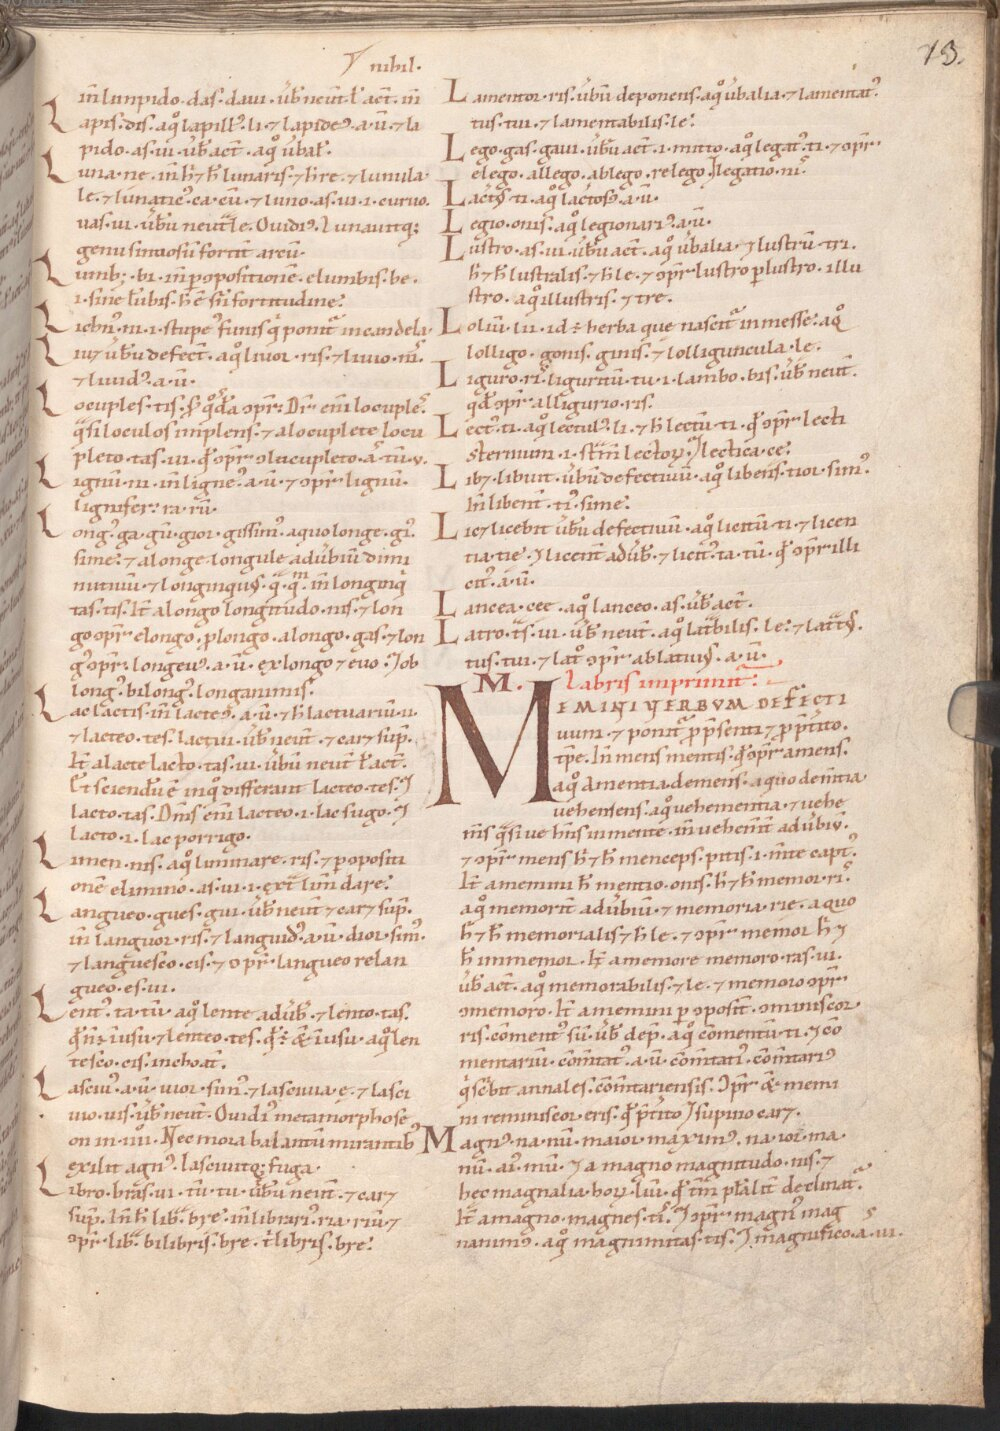 nihil.
13.
in linpido. das. daui. ūƀ neut̄ ł act̄. in
Lapis. dis. aq̊ lapill᷒. li. ⁊ lapide᷒. a. ū. ⁊ la
pido. as. ui. ūƀ act̄. aq̊ ūbał.
Luna. ne. in ħ ⁊ ħ lunaris. ⁊ ħ re. ⁊ lunula.
le. ⁊ lunatic᷒. ca. cū. ⁊ luno. as. ui. i. curuo.
uas. ui. ūƀū neut̄
Ouidi᷒. Lunauitq;
genu sinuosū fortit̄ arcū.
Lumb;. bi. in ꝓpositionē. elumbis. be.
i. sine lūbis. ħ ē sn̄ fortitudine.
Lichn᷒. ni. i. stupe᷒ funis q̄ ponit᷑ in candela.
Liu⁊ ūƀū defect̄. aq̊ liuor. ris. ⁊ liuio.
⁊ liuid᷒. a. ū.
Locuples. tis.
Dr̄ eni locuples.
q̄si loculos implens. ⁊ a locuplete locu
pleto. tas. ui.
Lignū. ni. in ligne᷒. a. ū. ⁊ ꝯpr̄ lignū.
lignifer. ra. rū.
Long᷒. ga. gū. gior. gissim᷒. a quo longe. gi᷒.
sime. ⁊ a longe longule adūbiū dimi
nutiuū. ⁊ longinqus̄.
in longinq̄
tas. tis. Iт̄ a longo longitudo. nis. ⁊ lon
go ꝯpr̄ elongo. ꝓlongo. alongo. gas. ⁊ lon
g᷒ ꝯpr̄. longeu᷒. a. ū. ex longo ⁊ euo.
long᷒. bilong᷒. longanimis.
Lac lactis. in lacte᷒. a. ū. ⁊ ħ lactuariū. ii.
⁊ lacteo. tes. lactui. ūƀ neut̄. ⁊ car⁊ sup̄.
It̄ a lacte lacto. tas. ui. ūƀū neut̄ ł act̄.
Et sciendū ē inq̊ differant lacteo. tes. ⁊
lacto. tas. Dr̄nis eni lacteo. i. lac sugo. ⁊
lacto. i. lac porrigo.
Limen. nis. aq̊ liminare. ris. ⁊ ꝓpositi
onē elimino. as. ui. i. ext̄ limi dare.
Langueo. gues. gui. ūƀ neut̄ ⁊ car⁊ sup̄.
in languor. ris. ⁊ languid᷒. a. ū. dior. sim᷒.
⁊ languesco. cis. ⁊ ꝯpr̄. langueo relan
gueo. es. ui.
Lent᷒. ta. tū. aq̊ lente adūƀ. ⁊ lento. tas.
q̄ n̄ ē ī usu. ⁊ lenteo. tes. q̄ ē ī usu. aq̊ len
tesco. cis. inchoat̄.
Lasciu᷒. a. ū. uior. sim᷒. ⁊ lasciuia. e. ⁊ lasci
uio. uis. ūƀ neut̄. Ouidi᷒ metamorphose
on in .iiii. Nec mora balantū mirantib᷒
exilit agn᷒. lasciuitq; fuga.
Libro. bras. ui. tū. tu. ūƀū neut̄. ⁊ car⁊
sup̄. In ħ lib. bre. in librari᷒. ria. riū. ⁊
ꝯpr̄. lib. bilibris. bre. tⁱlibris. bre.
Lamentor. ris. ūbū deponens. aq̊ ūbalia. ⁊ lamentat᷒.
tus. tui. ⁊ lamentabilis. le.
Lego. gas. gaui. ūƀū act̄. i. mitto. aq̊ legat᷒. ti. ⁊ ꝯpr̄.
elego. allego. ablego. relego.
legatio. ni᷒
Lact᷒s. ti. aq̊ lactos᷒. a. ū.
Legio. onis. aq̊ legionari᷒. a. ū.
Lustro. as. ui. ūƀū act̄. aq̊ ūbalia. ⁊ lustrū. tri.
ħ ⁊ ħ lustralis. ⁊ ħ le. ⁊ ꝯpr̄ lustro ꝑlustro. illu
stro. aq̊ illustris. ⁊ tre.
Loliū. lii. id ē herba que nascit᷑ in messe. aq̊
lolligo. gonis. ginis. ⁊ lolliguncula. le.
Liguro. ri᷒. liguritū. tu. i. lambo. bis. ūƀ neut̄.
qđ ꝯpr̄ alligurio. ris.
Lect᷒. ti. aq̊ lectul᷒. li. ⁊ ħ lectū. ti. q̄ ꝯpr̄ lecti
sternium. i.
lectoꝝ. ⁊ lectica. ce.
Lib⁊. libuit. ūbū defectiuū. aq̊ libens. tior. sim᷒.
In libent̄. ti᷒. sime.
Lic⁊ licebit ūƀū defectiuū. aq̊ licitū. ti. ⁊ licen
tia. tie. ⁊ licent̄ adūƀ. ⁊ licit᷒. ta. tū. q̄ ꝯpr̄ illi
cit᷒. a. ū.
Lancea. cee. aq̊ lanceo. as. ūƀ act̄.
Latro. t̄s. ui. ūƀ neut̄. aq̊ lat̄bilis. le. ⁊ lat̄t᷒s.
tus. tui. ⁊ lat᷒ ꝯpr̄ ablatiu᷒s. a. ū.
M. Labris imprimit᷑.
MEMINI VERBVM DEFECTI
uum. ⁊ ponit᷑ ꝓ p̄senti ⁊ ꝓ p̄t̄ito.
tp̄e. In mens mentis. q̄ ꝯpr̄ amens.
aq̊ amentia. demens. a quo dem̄tia
vehemens. aq̊ uehementia. ⁊ uehe
m̄s q̄si ue hn̄is in mente. in uehem̄t̄ adūbiū.
⁊ ꝯpr̄ mens ħ ⁊ ħ menceps. pitis. i. m̄te capt᷒.
It̄ a memini ħ mentio. onis. ħ ⁊ ħ memor. ri᷒.
aq̊ memorit̄ adūbiū. ⁊ memoria. rie. a quo
ħ ⁊ ħ memorialis. ⁊ ħ le. ⁊ ꝯpr̄ memor ħ ⁊
ħ immemor. It̄ a memore memoro. ras. ui.
ūƀ act̄. aq̊ memorabilis. ⁊ le. ⁊ memoro ꝯpr̄
ꝯmemoro. It̄ a memini ꝑ ꝯposit̄. ꝯminiscor
ris. coment᷒ sū. ūƀ dep̄. aq̊ comentū. ti. ⁊ co
mentariū. com̄tat᷒. a. ū. com̄tati᷒. com̄tari᷒
q̊ sc̄bit annales. com̄tariensis. ⁊ ꝯpr̄
memi
ni reminiscor. eris. q̄ p̄t̄ito ⁊ supino car⁊.
Magn᷒. na. nū. maior. maxim᷒. na. ior. ma.
nū. ai᷒. mū. ⁊ a magno magnitudo. nis. ⁊
hec magnalia. hoꝝ. liū. q̄ tm̄ pl̄alit̄ declinat᷑.
It̄ a magno. magnes. ti᷒. ⁊ ꝯpr̄ magn᷒ mag
nanim᷒. aq̊ magnimitas. tis. ⁊ magnifico. a. ui.